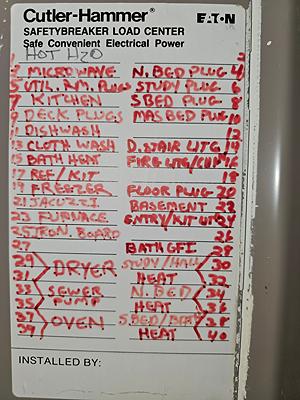 Cutler-Hammer® EATON
SAFETYBREAKER LOAD CENTER
Safe Convenient Electrical Power
HOT H2O
3 MICROWAVE N. BED PLUG 4
5 UTIL. RM. PLUGS STUDY PLUG 6
7 KITCHEN S BED PLUG 8
9 DECK PLUGS MAS BED PLUG 10
11 DISHWASH 12
13 CLOTH WASH D.STAIR LITG 14
15 BATH HEAT FIRE LITG/CHP 16
17 REF/KIT 18
19 FREEZER FLOOR PLUG 20
21 JACUZZI BASEMENT 22
23 FURNACE ENTRY/KIT LIT 24
25 IRON. BOARD 26
27 BATH GFI 28
29 DRYER STUDY/HALL 30
31 HEAT 32
33 SEWER N. BED 34
35 PUMP HEAT 36
37 OVEN S.BED/BATH 38
39 HEAT 40
INSTALLED BY: